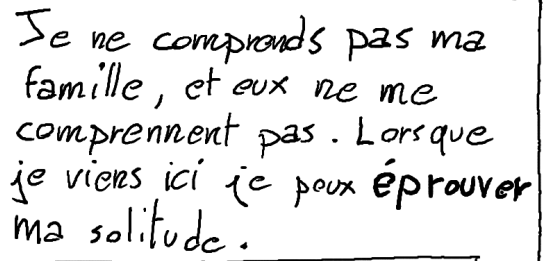 Je ne comprends pas ma
famille, et eux ne me
comprennent pas. Lorsque
je viens ici je peux éprouver
ma solitude.